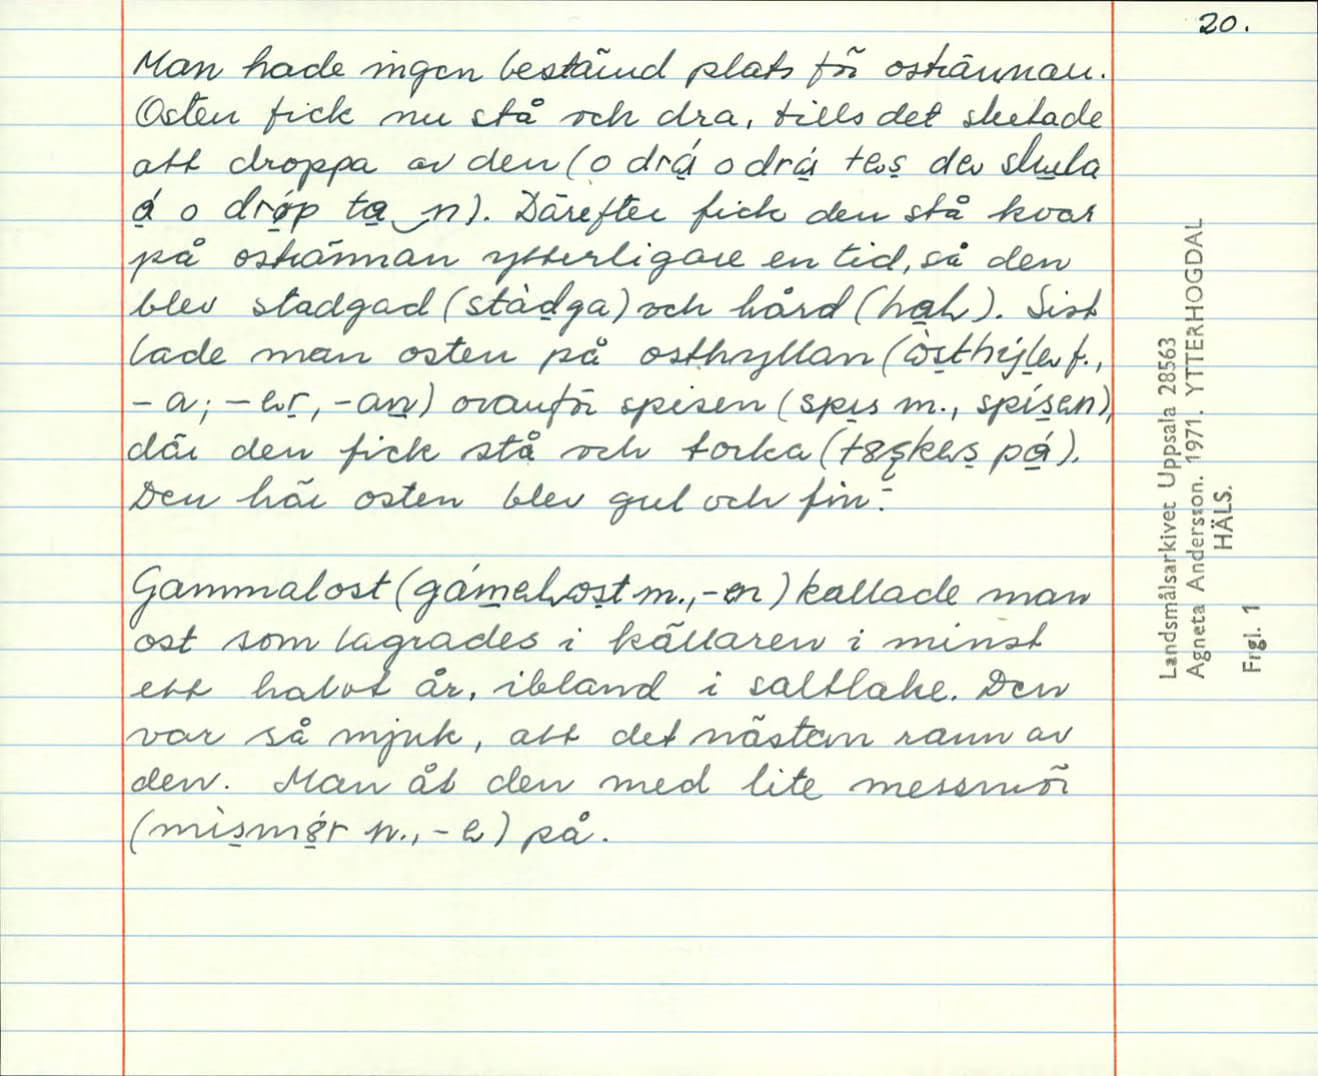 20.
Man hade ingen bestämd plats för ostrännan.
Osten fick nu stå och dra, tills det slutade
att droppa av den (o drá o drá tes de sluta
á o dróp ta n). Därefter fick den stå kvar
på ostrännan ytterligare en tid, så den
blev stadgad (stàdga) och hård (hah). Sist
lade man osten på osthyllan (òsthýle f.,
-a; -er, -an) ovanför spisen (spis m., spísen),
där den fick stå och torka (pá).
Den här osten blev gul och fin.
Gammalost (gámelost m., -en) kallade man
ost som lagrades i källaren i minst
ett halvt år, ibland i saltlake. Den
var så mjuk, att det nästan rann av
den. Man åt den med lite messmör
(mìsmör n., -e) på.
Landsmålsarkivet Uppsala 28563
Agneta Andersson. 1971. YTTERHOGDAL
HÄLS.
Frgl. 1